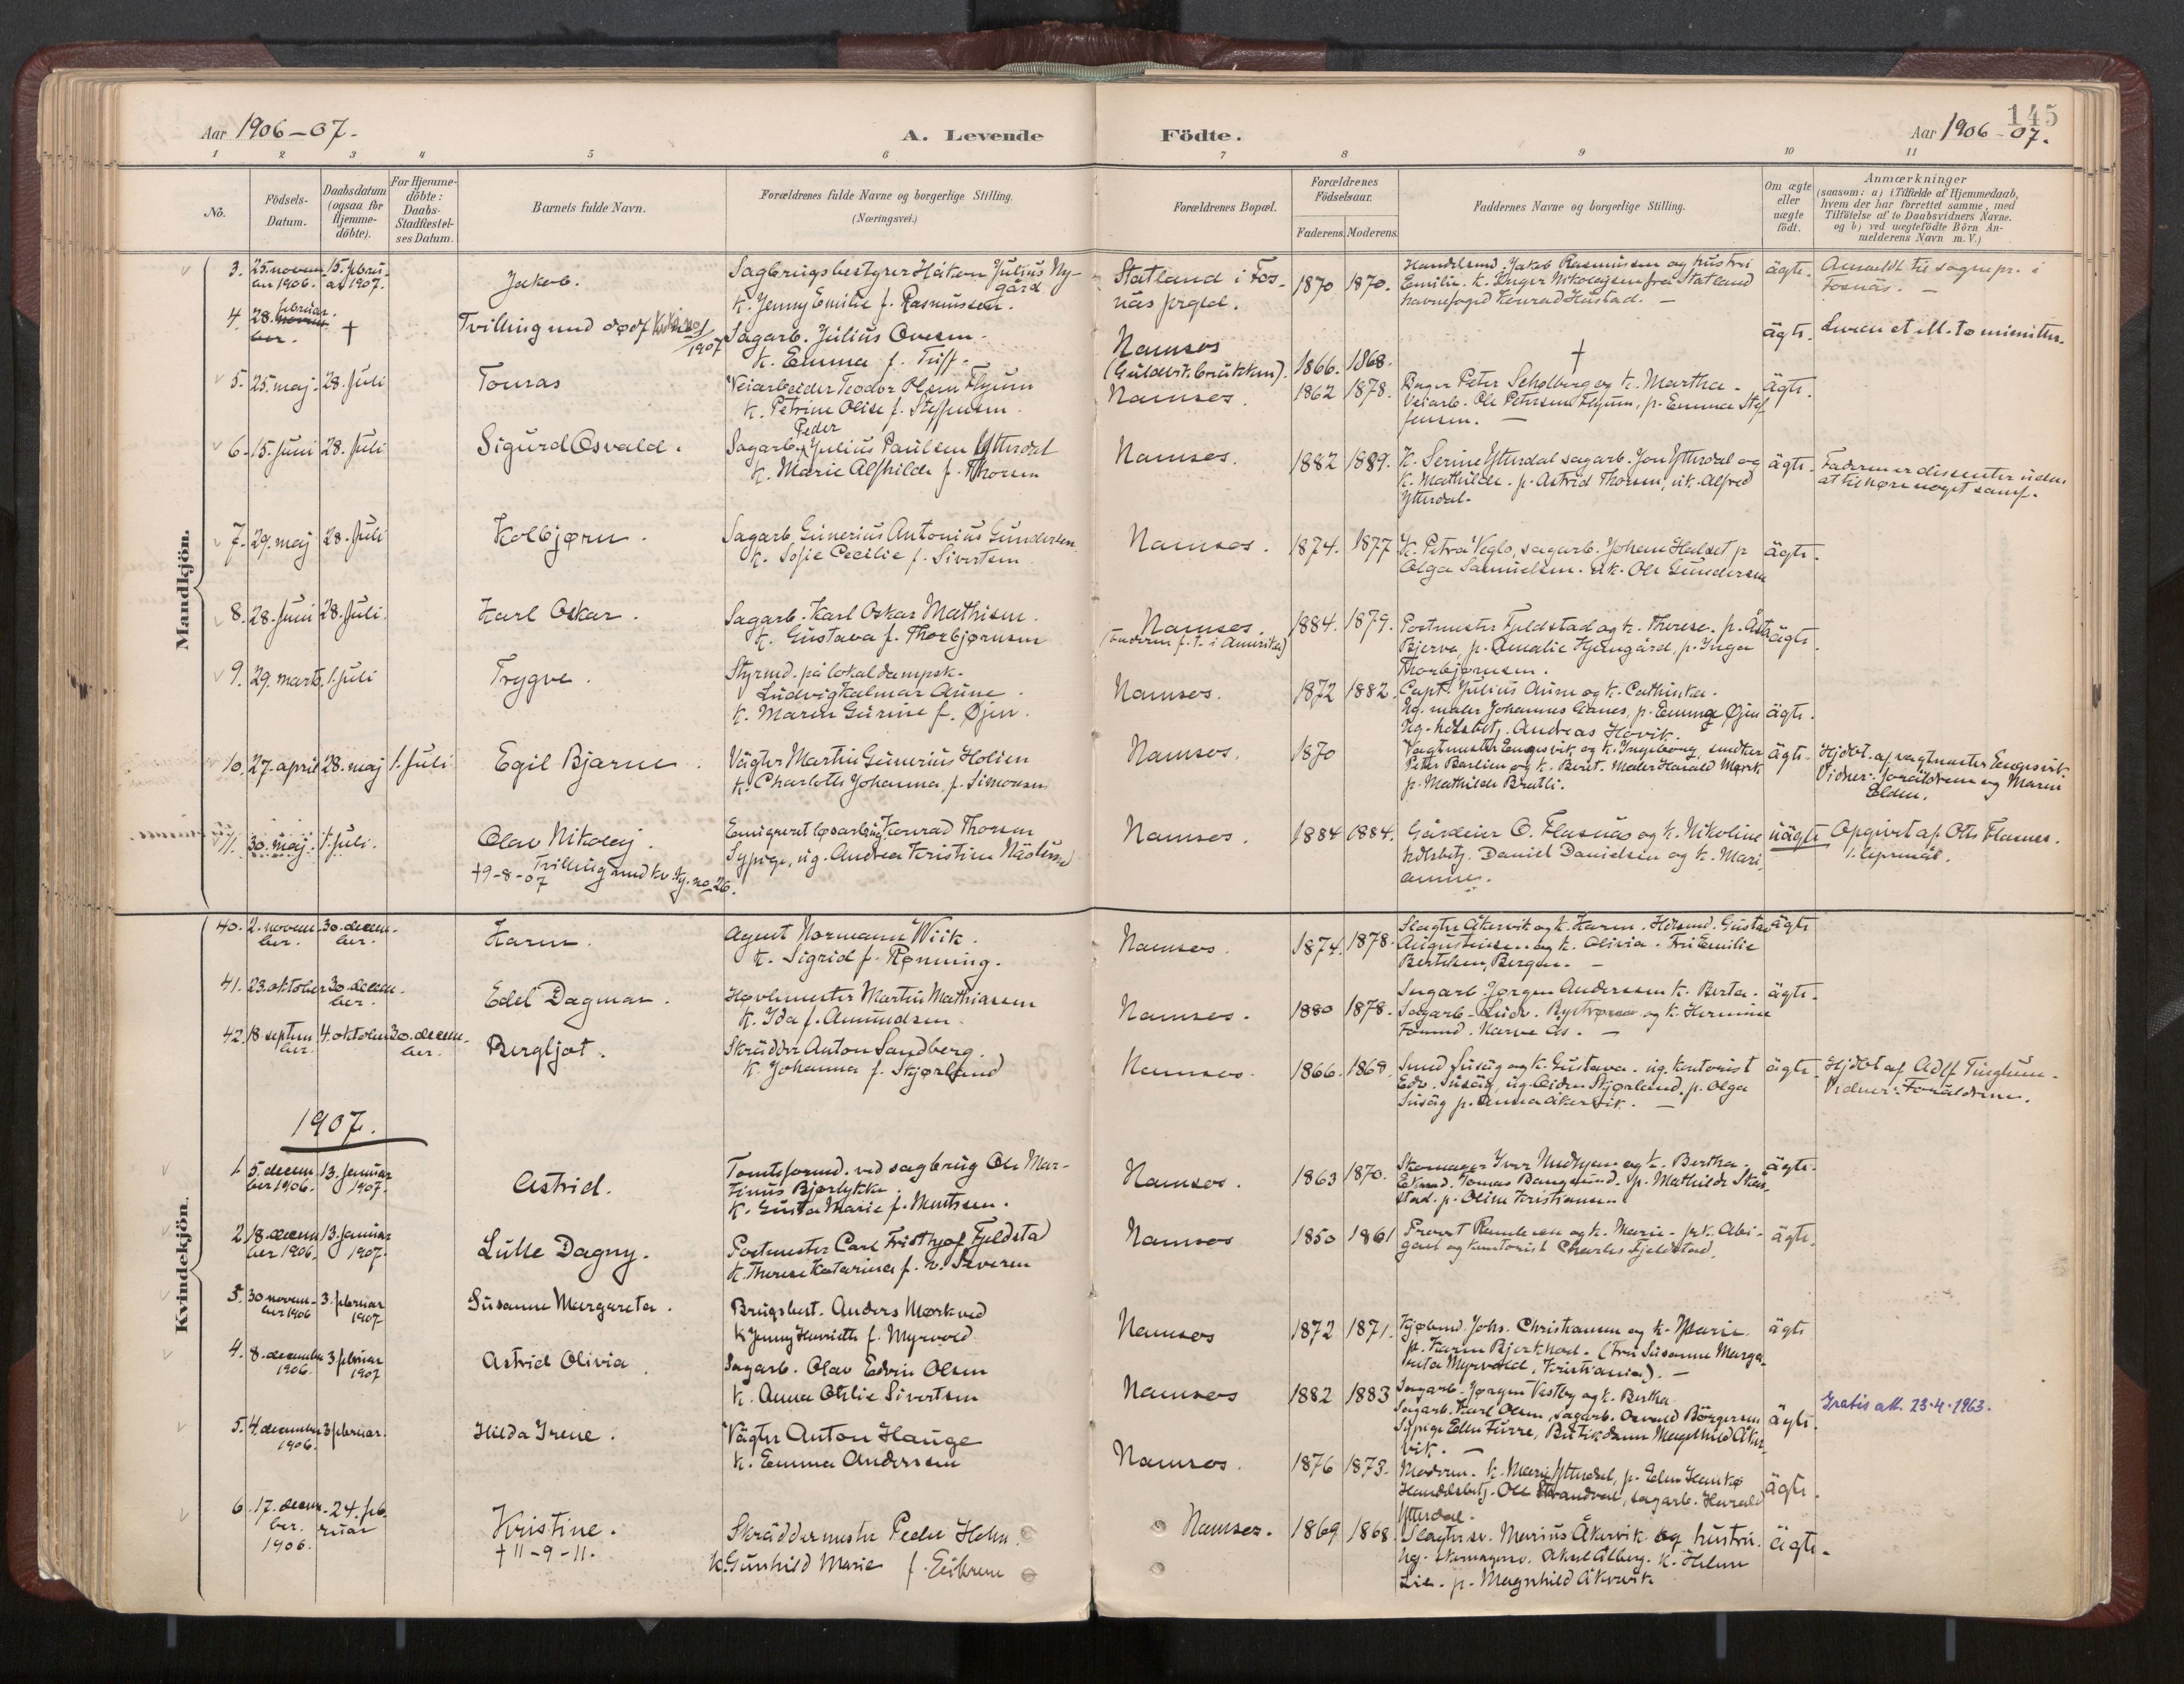 145
Aar 1906-07.
A. Levende
Födte.
Aar 1906-07.
1 2 3 4 5 6 7 8 9 10 11
No.
Födsels-
Datum.
Daabsdatum
(ogsaa for
Hjemme-
döbte).
For Hjemme-
döbte:
Daabs-
Stadfæstel-
ses Datum.
Barnets fulde Navn.
Forældrenes fulde Navne og borgerlige Stilling.
(Næringsvei.)
Forældrenes Bopæl.
Forældrenes
Födselsaar.
Faderens. Moderens.
Faddernes Navne og borgerlige Stilling.
Om ægte
eller
uægte
födt.
Anmærkninger
(saasom: a) i Tilfælde af Hjemmedaab,
hvem der har forrettet samme, med
Tilföielse af to Daabsvidners Navne.
og b) ved uægtefödte Börn An-
melderens Navn m. V.)
Mandkjön.
3. 25. novem-
ber 1906.
15. febru-
ar 1907.
Jakob.
Sagbrugsbestyrer Håkon Julius Ny-
gård
K. Jenny Emilie f. Rasmussen.
Statland i Fos-
näs prgld.
1870 1870.
Handelsmd. Jakob Rasmussen og hustru
Emilie. K. Inger Nikolajsen fra Statland
havnefoged Konrad Hustad. -
ägte.
Anmeldt til sognepr. i
Fosnäs. -
4. 28. februar.
ber.
†
Tvilling md dødf.
1907
Sagarb. Julius Ovesen.
K. Emma f.
Namsos
(Guldvik. brukken).
1866. 1868.
†
ägte.
Leven et to minutter.
5. 25. maj. 28. Juli
Tomas
Veiarbeider Teodor Olsen Flyum
K. Petrine Olise f. Steffensen.
Namsos.
1862 1878.
Bager Peter Schølberg og K. Martha.
Veiarb. Ole Petersen Flyum, p. Emma Stef-
fensen. -
ägte.
6. 15. Juni 28. Juli
Sigurd Osvald.
Peder
Sagarb. Julius Paulsen Ytterdal
K. Marie Alfhilde f. Thorsen
Namsos.
1882 1889.
K. Serine Ytterdal sagarb. Jon Ytterdal og
K. Mathilde. p. Astrid Thorsen, uk. Alfred
Ytterdal.
ägte.
Faderen er dissenter uden
at tilhøre noget samf.
7. 29. maj 28. Juli
Kolbjørn.
Sagarb. Gunerius Antonius Gundersen
K. Sofie Cecilie f. Sivertsen
Namsos.
1874. 1877
K. Petra Veglo, sagarb. Johan Halset p
Olga Samuelsen. uk. Ole Gundersen
ägte.
8. 28. Juni 28. Juli.
Karl Oskar.
Sagarb. Karl Oskar Mathisen.
K. Gustava f. Thorbjørnsen
Namsos.
(faderen f. t. i Amerika)
1884. 1879.
Postmester Fjeldstad og K. Therese. p. Asta
Bjerva, p. Amalie Hjemgård, p. Inga
Thorbjørnsen.
ägte.
9. 29. marts. 1. juli
Trygve.
Styrmd. på lokaldampsk.
Ludvig Kalmar Aune.
K. Maren Gurine f. Øjen.
Namsos.
1872 1882.
Capt. Julius Aune og K. Cathinka.
Ug. maler Johannes Aanes, p. Emma Øjen
Ug. hdlsbetj. Andreas Hovik.
ägte.
10. 27. april 28. maj 1. juli
Egil Bjarne.
Vägter Martin Gunerius Holien
K. Charlotte Johanna f. Simonsen
Namsos.
1870
Vagtmester Engesvik og K. Ingeborg, smed
Peter Barlien og K. Beret. Maler Harald Mørk
p. Mathilde Bratli.
ägte.
Hjdbt. af vagtmester Engesvik.
Vidner: foräldrene og Maren
Elden.
11. 30. maj. 1. juli.
Olav Nikolaj.
†9-8-07 Tvilling md kv. kj. no 26.
Emigreret løsarbeider Konrad Thorsen
Sypige, ug. Andrea Kristine Näslund
Namsos.
1884 1884.
Gårdeier O. Flasnäs og K. Nikoline
hdlsbetj. Daniel Danielsen og K. Mari-
anne.
uägte
Opgivet af Otto Flasnes.
1. lejermål.
Kvindekjön.
40. 2. novem-
ber.
30. decem-
ber.
Karen.
Agent Normann Wiik.
K. Sigrid f. Rønning.
Namsos.
1874. 1878.
Slagter Åkervik og K. Karen. Gustav
Augustinsen og K. Olivia. Frk Emilie
Bertelsen, Bergen. -
ägte
41. 23. oktober 30. decem-
ber.
Edel Dagmar.
Høvlemester Martin Mathiassen
K. Ida f. Amundsen.
Namsos.
1880 1878.
Sagarb. Jørgen Anderssen K. Berta.
Sagarb. Ludv. og K. Hermine
ägte.
42. 18 septem-
ber.
4. oktober 30. decem-
ber.
Bergljot.
Skrädder Anton Sandberg.
K. Johanna f. Skjørland
Namsos.
1866. 1868.
Smed Susäg og K. Gustava. ug. kontorist
Edv. Susäg, ug. Skjørland. p. Olga
Susäg p. Anna Åkervik. -
ägte.
Hjdbt af Adlf Tinghun.
Vidner: Foräldrene.
1907.
1. 5. decem-
ber 1906.
13. januar
1907.
Astrid.
Tomteformd. ved sagbrug Ole Mar-
tinus Bjørlykke.
K. Gusta Marie f. Mentsen.
Namsos.
1863 1870.
Skomager Iver Medhjem og K. Bertha.
Tomas Bangsund. p. Mathilde Skar-
stad. p. Oline Kristiansen
ägte.
2. 18. decem-
ber 1906.
13. januar
1907.
Lulle Dagny.
Postmester Carl Fridthjof Fjeldstad
K. Therese Katarina f. v. Severen
Namsos
1850 1861
Provst og K. Marie. frk. Abi-
gael og kontorist Charles Fjeldstad.
ägte.
3. 30 novem-
ber 1906
3. februar
1907
Susanne Margareta.
Brugsbest. Anders Mørkved
K Jenny Henriette f. Myrvold
Namsos
1872 1871.
Kjøbmd. Johs. Christiansen og K. Marie.
p. Karen Bjerkhod. (Fru Susanne Marga-
reta Myrvold, Kristiania). -
ägte
4. 8. december
1906.
3 februar
1907
Astrid Olivia.
Sagarb. Olav Edvin Olsen
K. Anna Otilie Sivertsen
Namsos
1882 1883
Sagarb. Jørgen Vestby og K. Bertha
Sagarb. Karl Olsen, sagarb. Osvald Börgersen
Sypige Ellen Furre, Butikdame Magnhild Åker-
vik. -
ägte.
Gratis att. 23.4.1963.
5. 4. december
1906.
3 februar.
Hilda Irene.
Vägter Anton Hauge
K. Emma Anderssen
Namsos.
1876 1873.
Moderen. K. Marie Ytterdal, p. Edin Hanko
Handelsbetj. Ole Strandvol, sagarb. Harald
Ytterdal.
ägte.
6. 17. decem-
ber.
1906.
24. feb-
ruar
Kristine.
† 11-9-11.
Skräddermester Peder Holm.
K. Gunhild Marie f. Eikrem
Namsos.
1869 1868.
Slagtersv. Marius Åkervik og hustru.
Ug. skomagersv. Aksel Alberg. K. Helene
Lie. p. Magnhild Åkervik.
ägte.